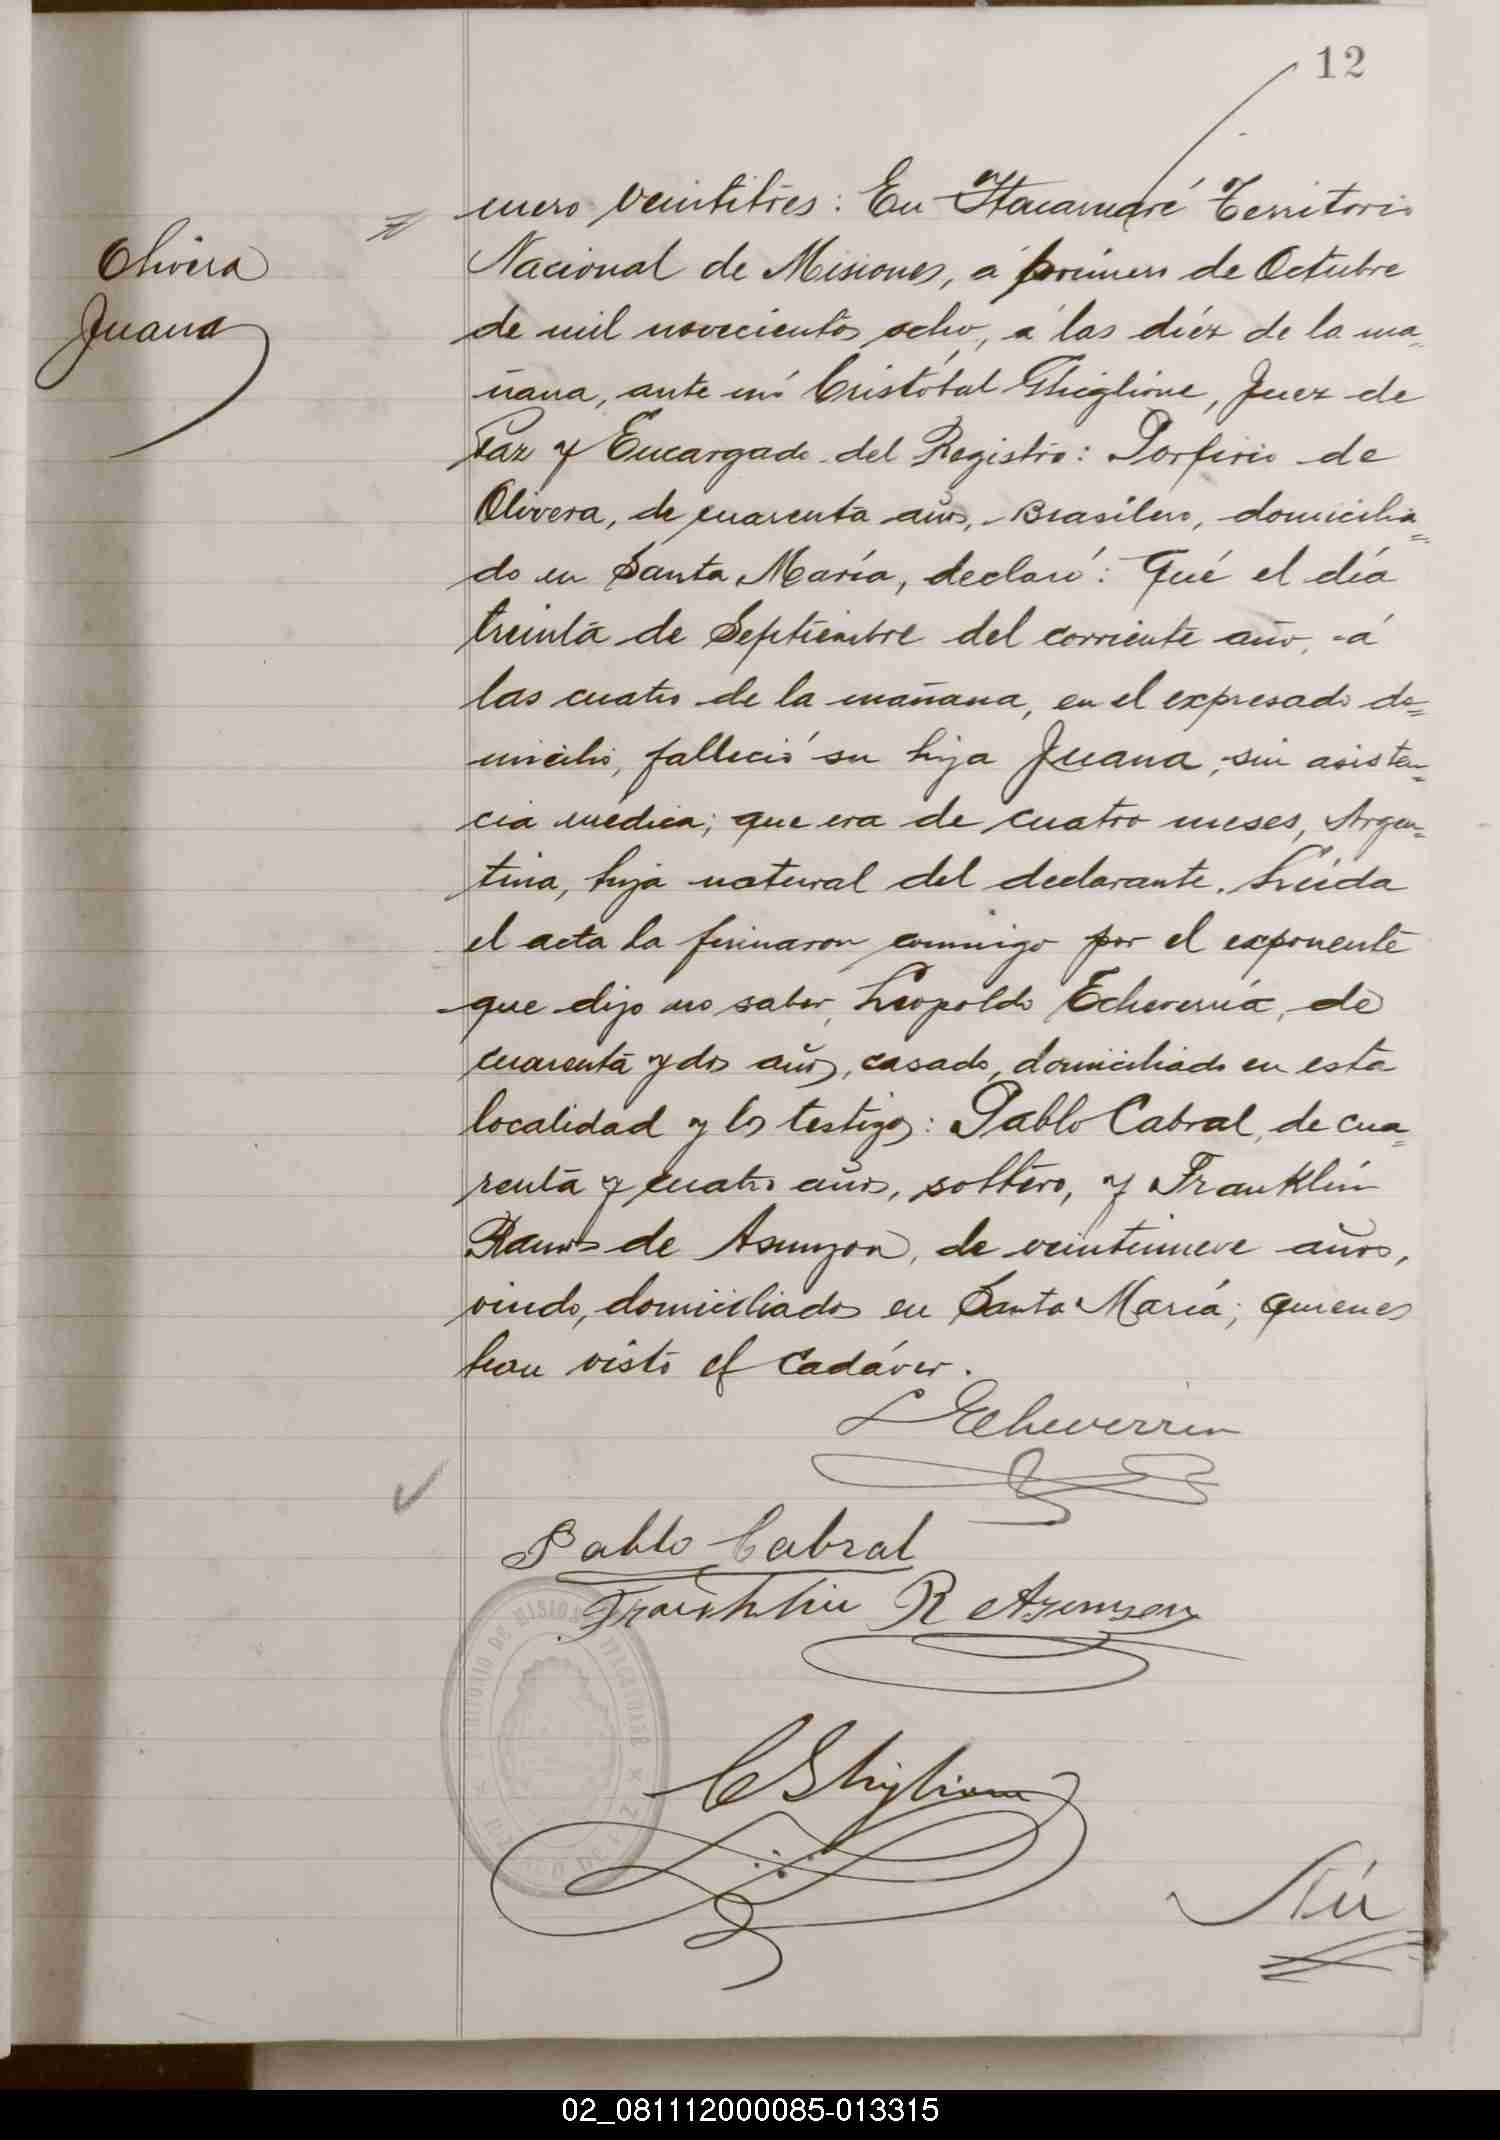 12
Olivera
Juana
mero veintitrés: En Itacaruaré Territorio
Nacional de Misiones, á primero de Octubre
de mil novecientos ocho, á las diéz de la ma-
ñana, ante mí Cristóbal Ghiglione, Juez de
Paz y Encargado del Registro: Porfirio de
Olivera, de cuarenta años, Brasilero, domicilia=
do en Santa María, declaró: Qué el día
treinta de Septiembre del corriente año, á
las cuatro de la mañana, en el expresado do=
micilio, falleció su hija Juana, sin asisten=
cia médica; que era de cuatro meses, Argen=
tina, hija natural del declarante. Léida
el acta la firmaron conmigo por el exponente
que dijo no saber, Leopoldo Echeverría, de
cuarenta y dos años, casado, domiciliado en esta
localidad y los testigos: Pablo Cabral, de cua=
renta y cuatro años, soltero, y Franklin
Ramos de Asunzon, de veintinueve años,
viudo, domiciliados en Santa María; quienes
han visto el cadáver.
L Echeverria
Pablo Cabral
Franklin R Asunzon
C Ghiglione
Nú
TERRITORIO DE MISIONES
JUZGADO DE PAZ
02_081112000085-013315